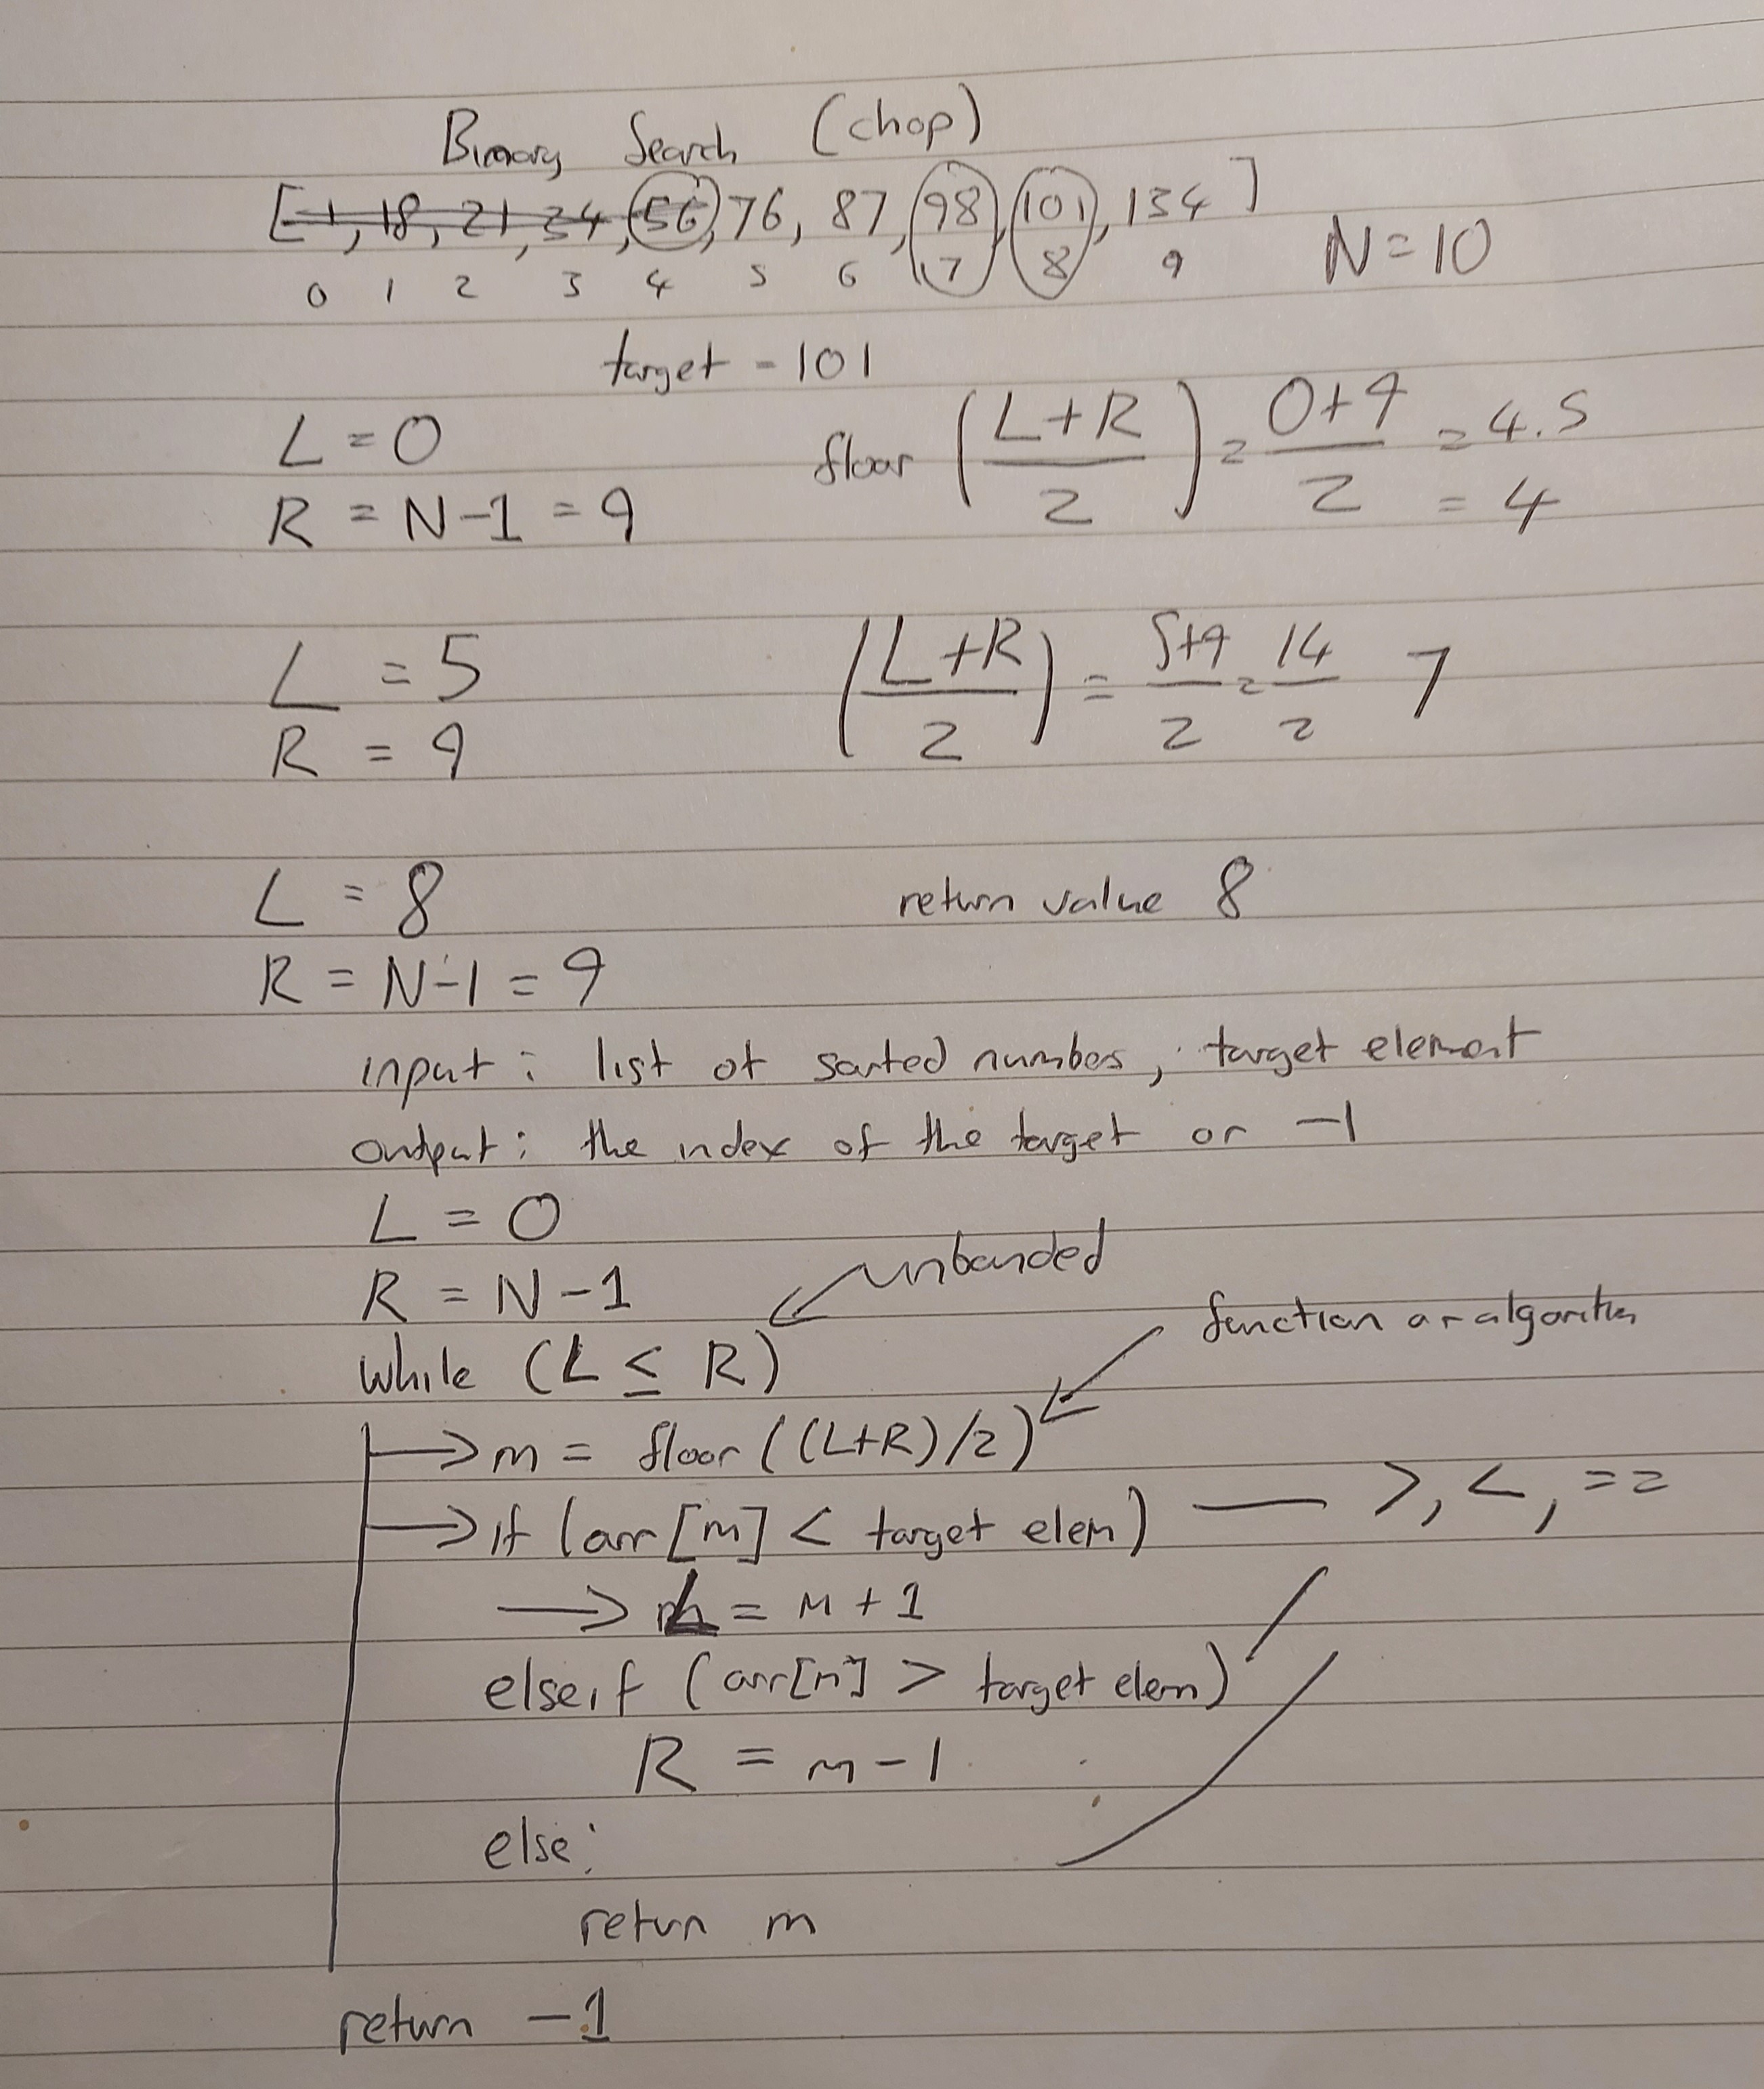 Binary Search (chop)
[-1, 18, 21, 34, 56, 76, 87, 98, 101, 134]
0 1 2 3 4 5 6 7 8 9 N=10
target - 101
L = 0 floor (L+R / 2) = 0+9 / 2 = 4.5
R = N-1 = 9 = 4
L = 5 (L+R / 2) = 5+9 / 2 = 14 / 2 7
R = 9
L = 8 return value 8
R = N-1 = 9
input : list of sorted numbers, target element
output : the index of the target or -1
L = 0
R = N-1 unbounded
function or algorithm
while (L ≤ R)
→ m = floor ((L+R)/2)
→ if (arr[m] < target elem) — >, <, ==
→ L = m + 1
elseif (arr[m] > target elem)
R = m - 1
else:
return m
return -1